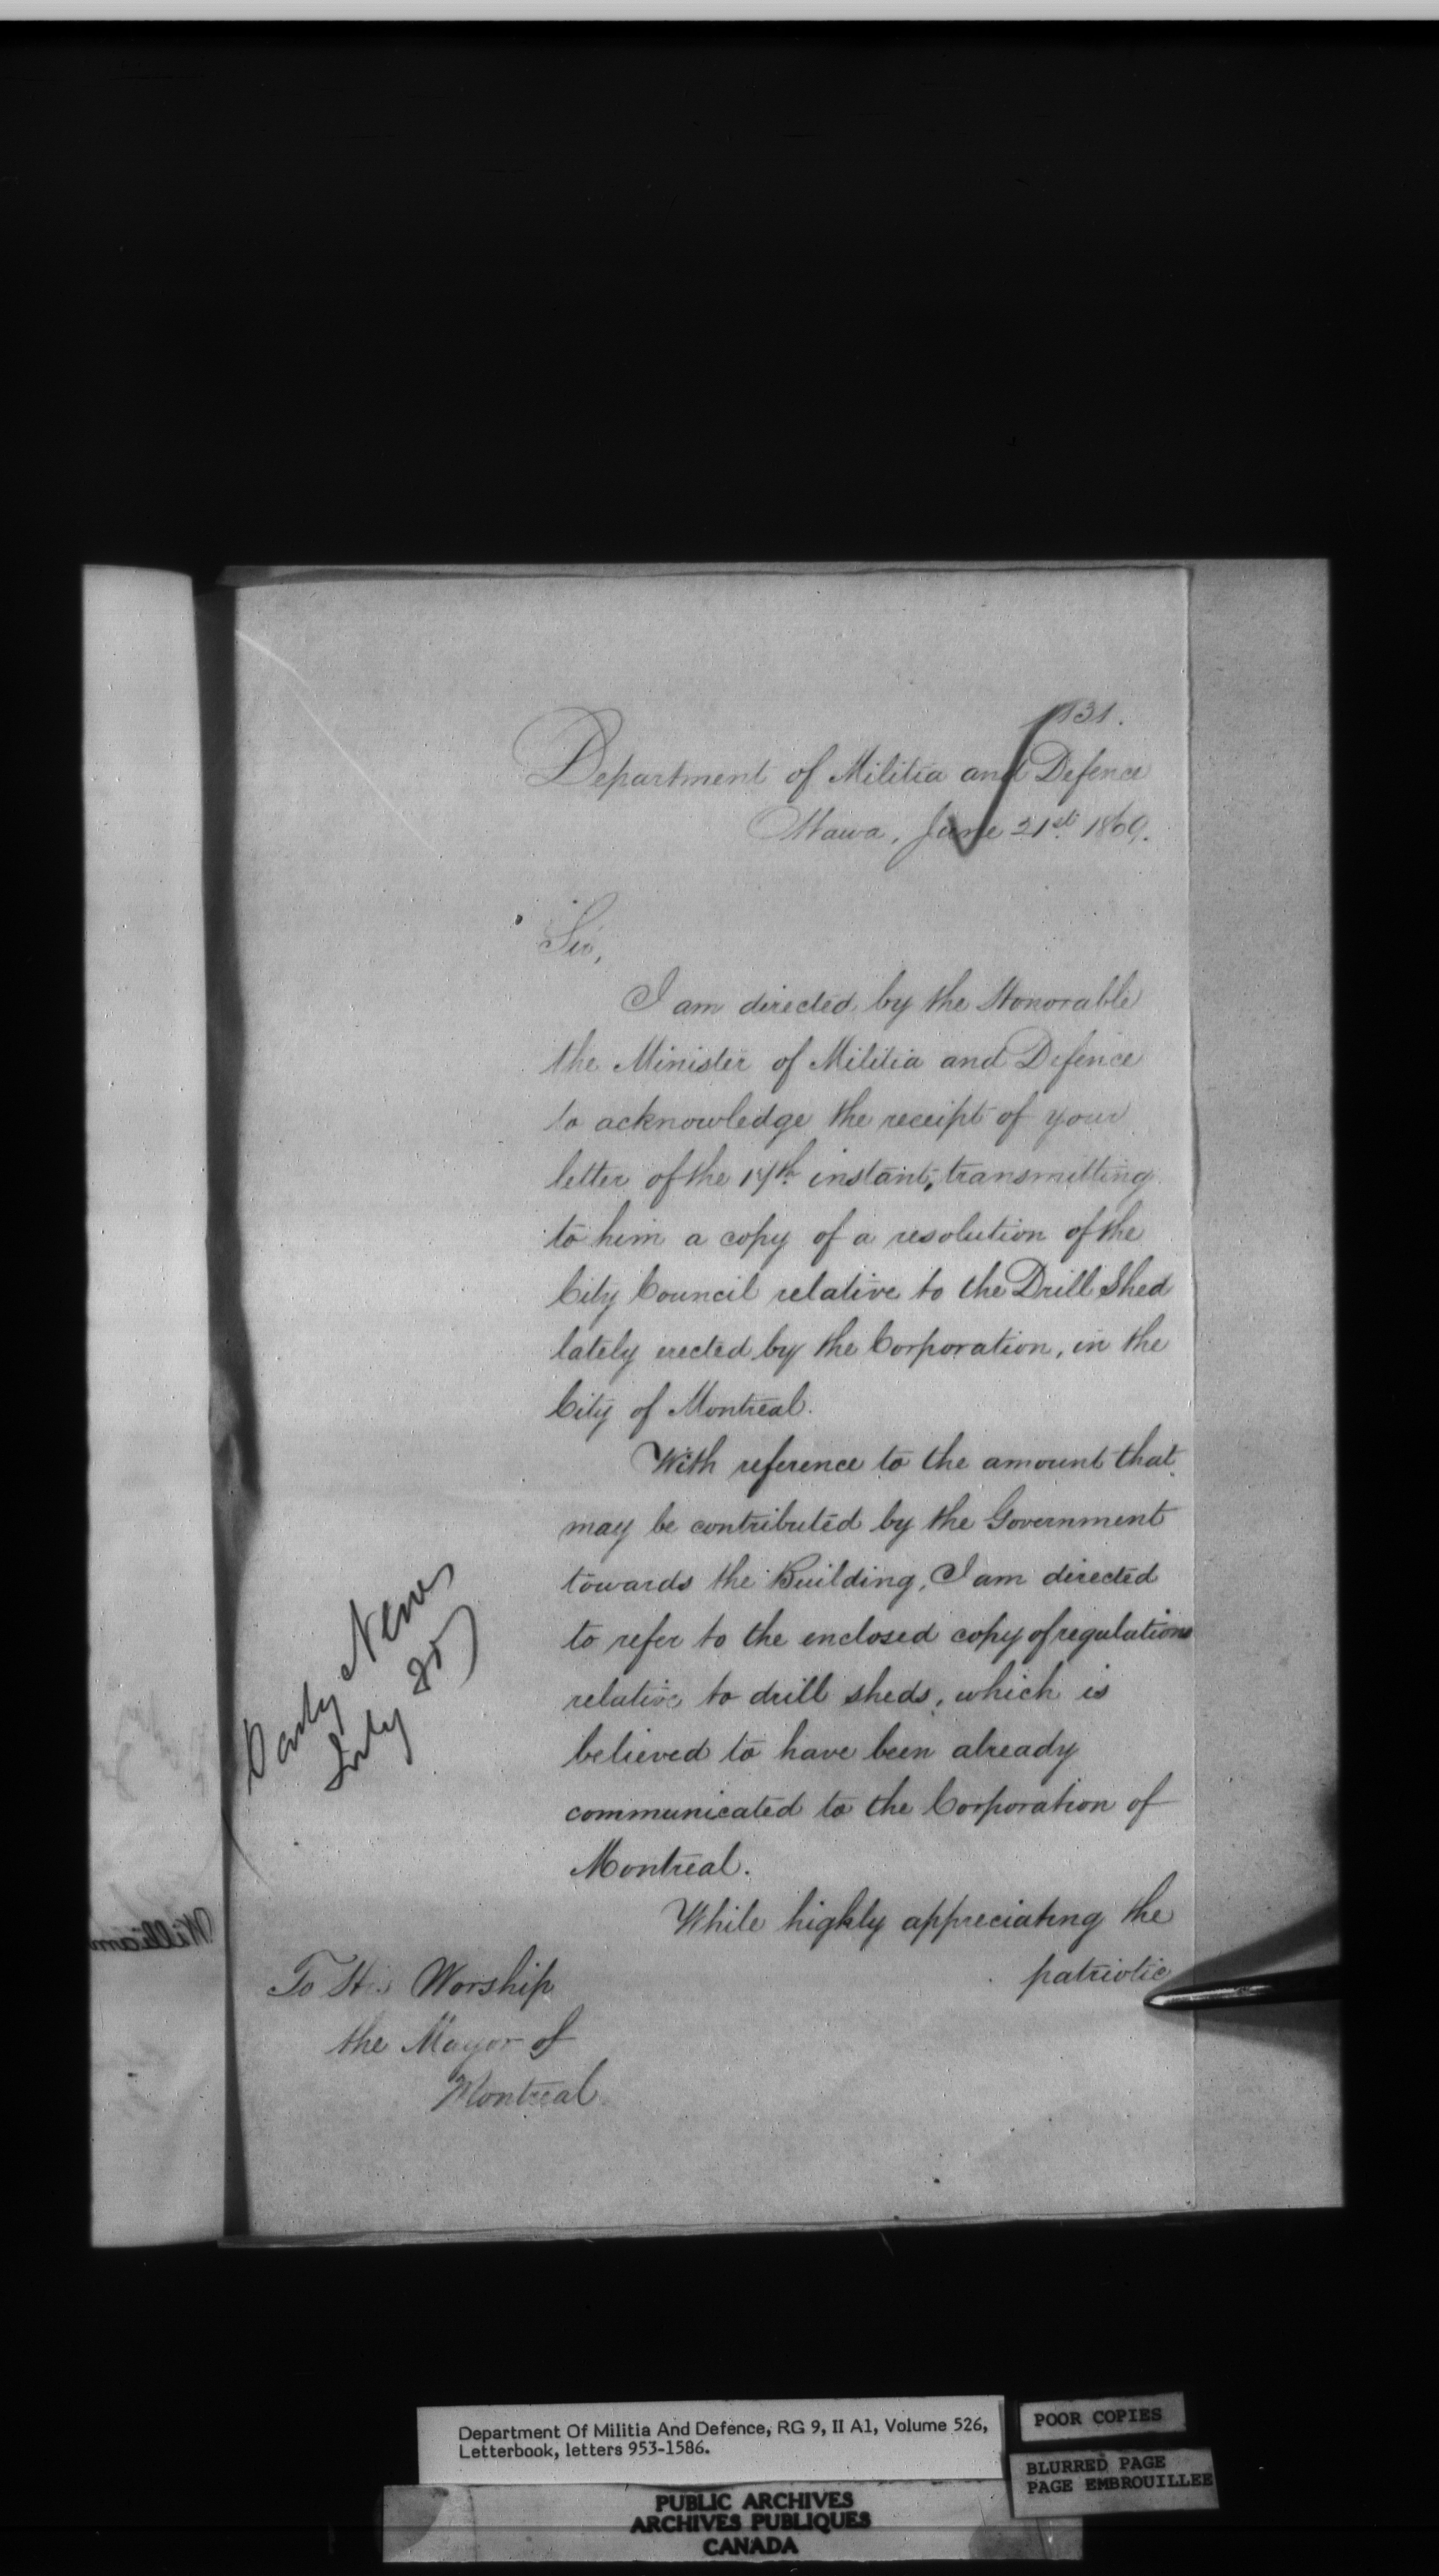 1131.
Department of Militia and Defence
Ottawa, June 21st 1869.
Sir,
I am directed by the Honorable
the Minister of Militia and Defence
to acknowledge the receipt of your
letter of the 17th instant, transmitting
to him a copy of a resolution of the
City Council relative to the Drill Shed
lately erected by the Corporation, in the
City of Montreal.
With reference to the amount that
may be contributed by the Government
towards the Building, I am directed
to refer to the enclosed copy of regulations
relative to drill sheds, which is
believed to have been already
communicated to the Corporation of
Montreal.
While highly appreciating the
patriotic
To His Worship
the Mayor of
Montreal
Daily News
July 25
William
Department Of Militia And Defence, RG 9, II A1, Volume 526,
Letterbook, letters 953-1586.
POOR COPIES
BLURRED PAGE
PAGE EMBROUILLEE
PUBLIC ARCHIVES
ARCHIVES PUBLIQUES
CANADA